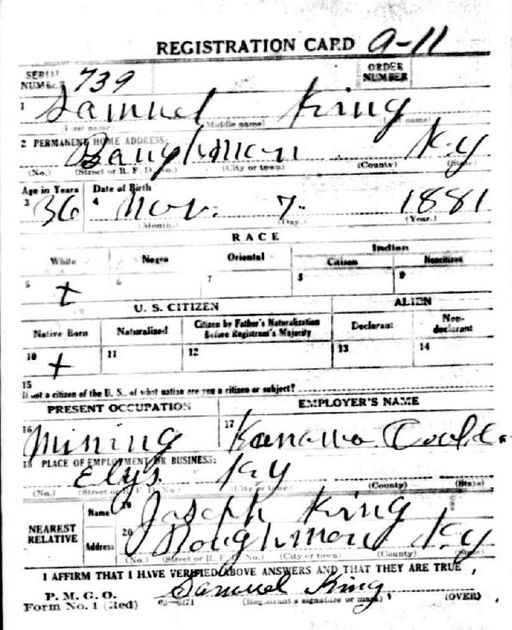 REGISTRATION CARD A-11
SERIAL NUMBER 739 ORDER NUMBER
1 Samuel King
(First name) (Middle name) (Last name)
2 PERMANENT HOME ADDRESS:
Baughman Ky
(No.) (Street or R. F. D. No.) (City or town) (County) (State)
Age in Years Date of Birth
3 36 4 Nov. 7 1881
(Month.) (Day.) (Year.)
RACE
White Negro Oriental Indian
Citizen Noncitizen
5 x 6 7 8 9
U. S. CITIZEN ALIEN
Native Born Naturalized Citizen by Father's Naturalization Before Registrant's Majority Declarant Non-declarant
10 x 11 12 13 14
15
If not a citizen of the U. S., of what nation are you a citizen or subject?
PRESENT OCCUPATION EMPLOYER'S NAME
16 Mining 17 Kanawa
18 PLACE OF EMPLOYMENT OR BUSINESS:
Elys Ky
(No.) (Street or R. F. D. No.) (County) (State)
NEAREST RELATIVE
Name 19 Joseph King
Address 20 Boughman Ky
(No.) (Street or R. F. D. No.) (City or town) (County) (State)
I AFFIRM THAT I HAVE VERIFIED ABOVE ANSWERS AND THAT THEY ARE TRUE
P. M. G. O.
Form No. 1 (Red) Samuel King
(Registrant's signature or mark) (OVER)